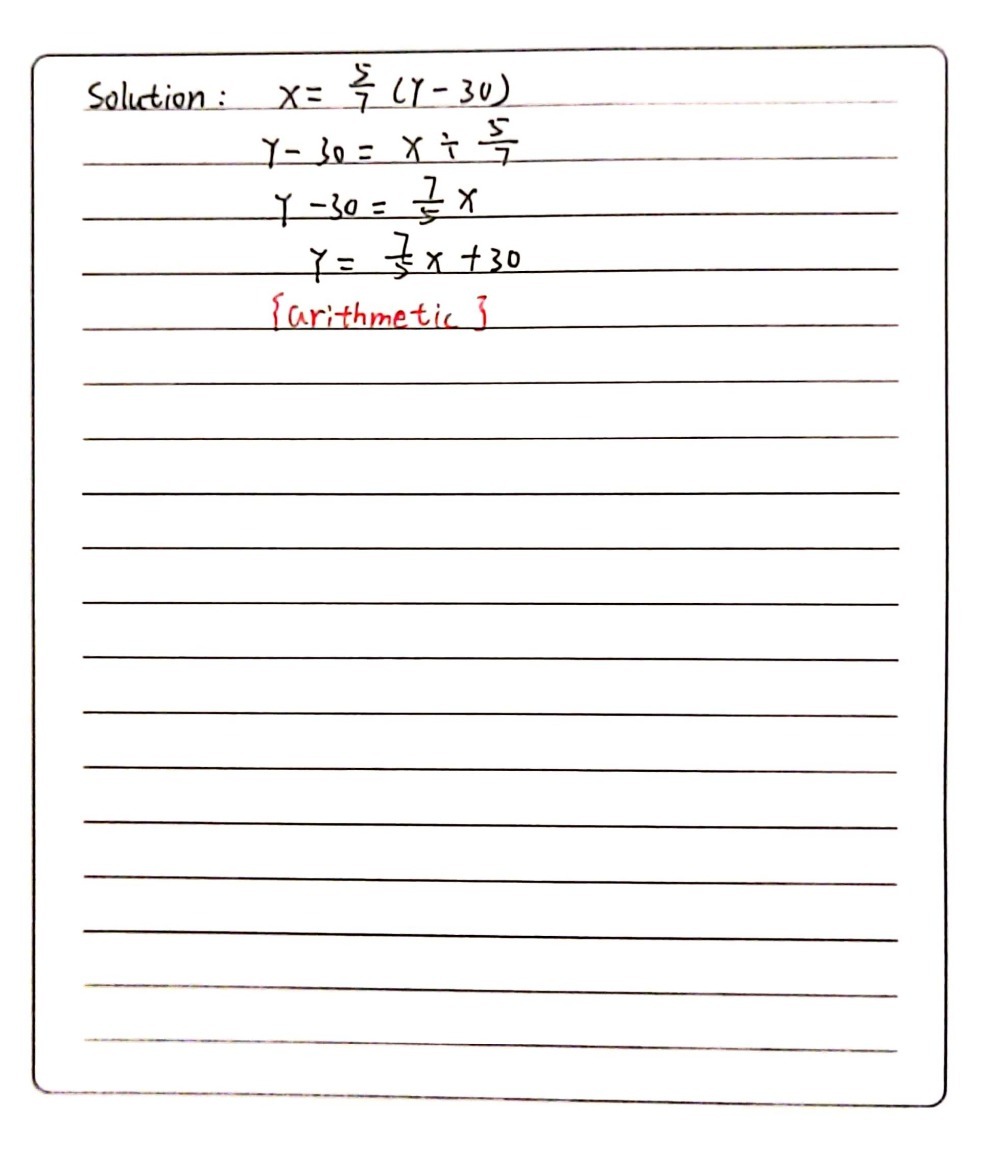 Solution: X = 5/7 (Y - 30)
Y - 30 = X ÷ 5/7
Y - 30 = 7/5 X
Y = 7/5 X + 30
{arithmetic}